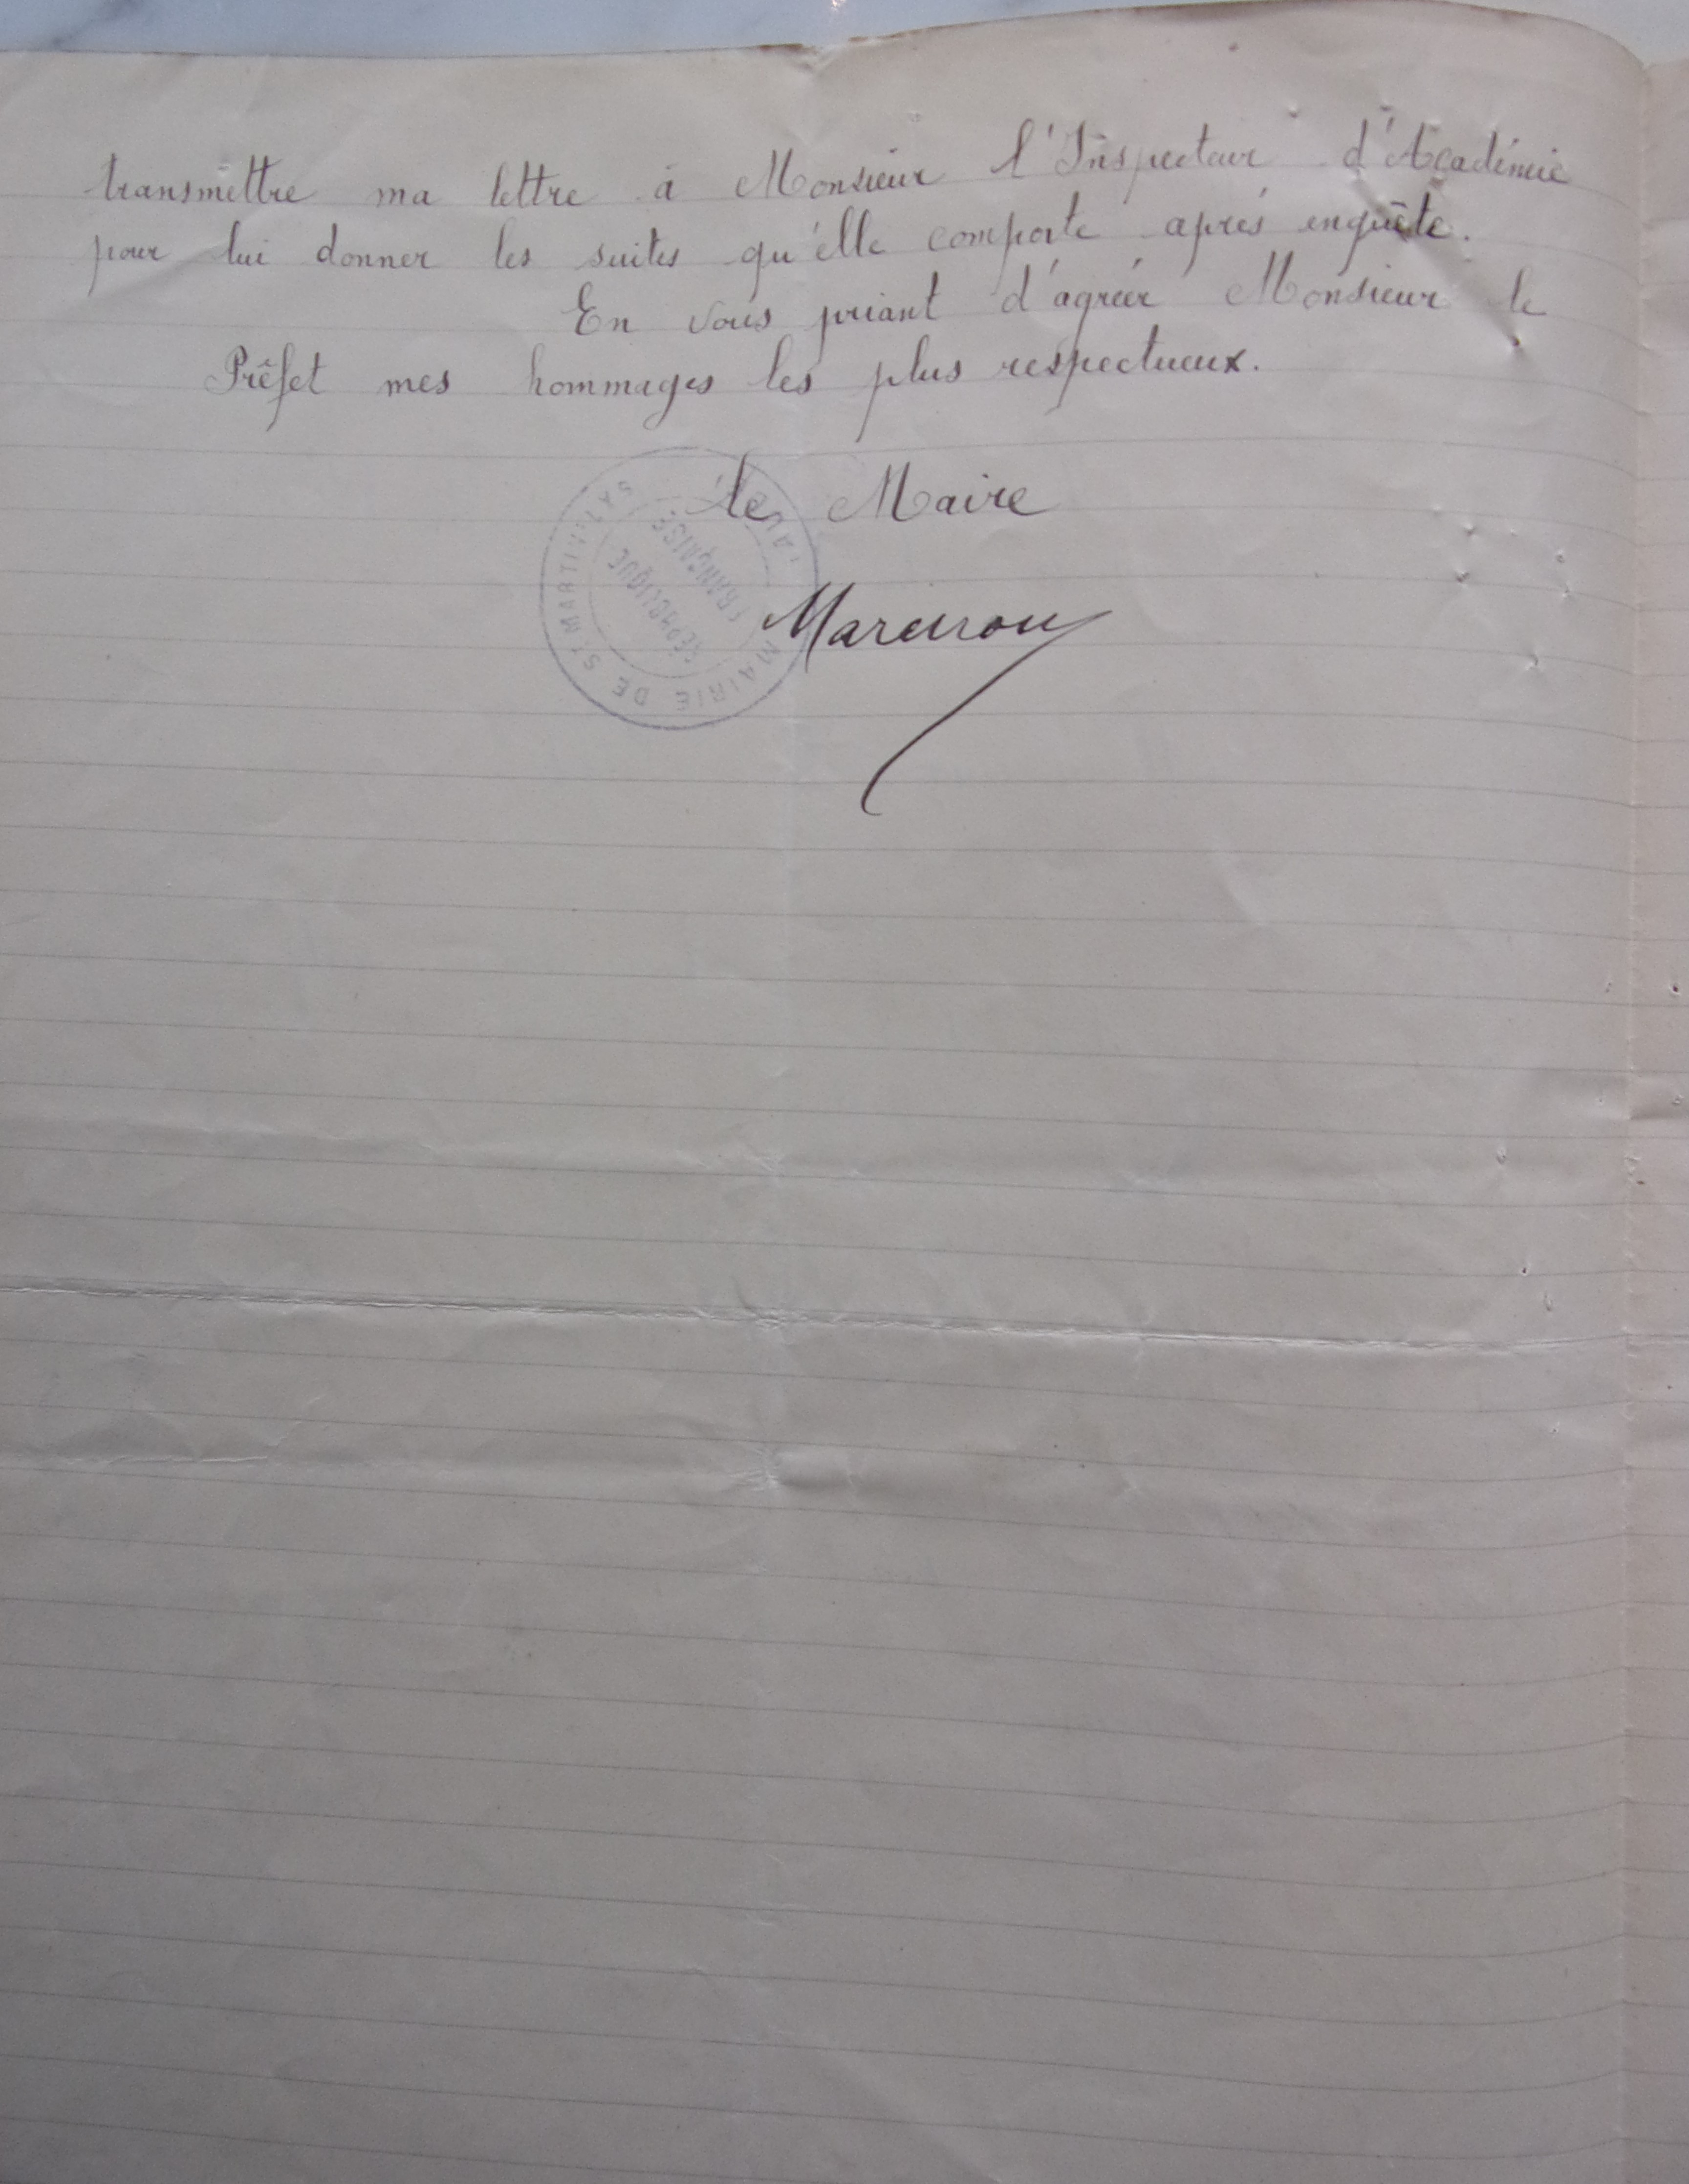 transmettre ma lettre à Monsieur l'Inspecteur d'Académie
pour lui donner les suites qu'elle comporte après enquête.
En vous priant d'agréer Monsieur le
Prêfet mes hommages les plus respectueux.
Le Maire
MAIRIE DE St MARTIN-LYS
RÉPUBLIQUE
FRANÇAISE